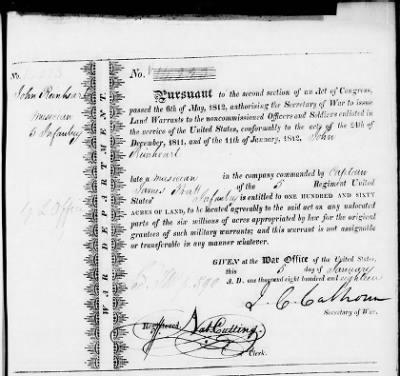 No.
John Rinhear
musician
5 Infantry
WAR DEPARTMENT.
No.
Pursuant to the second section of an Act of Congress,
passed the 6th of May, 1812, authorising the Secretary of War to issue
Land Warrants to the noncommissioned Officers and Soldiers enlisted in
the service of the United States, conformably to the acts of the 24th of
December, 1811, and of the 11th of January, 1812. John
Rinheart
late a musician in the company commanded by Captain
James Pratt of the 5 Regiment United
States' Infantry is entitled to ONE HUNDRED AND SIXTY
ACRES OF LAND, to be located agreeably to the said act on any unlocated
parts of the six millions of acres appropriated by law for the original
grantees of such military warrants; and this warrant is not assignable
or transferable in any manner whatever.
GIVEN at the War Office of the United States,
this 5 day of January
A. D. one thousand eight hundred and eighteen
J. C. Calhoun
Secretary of War.
Registered Nat. Cutting.
Clerk.